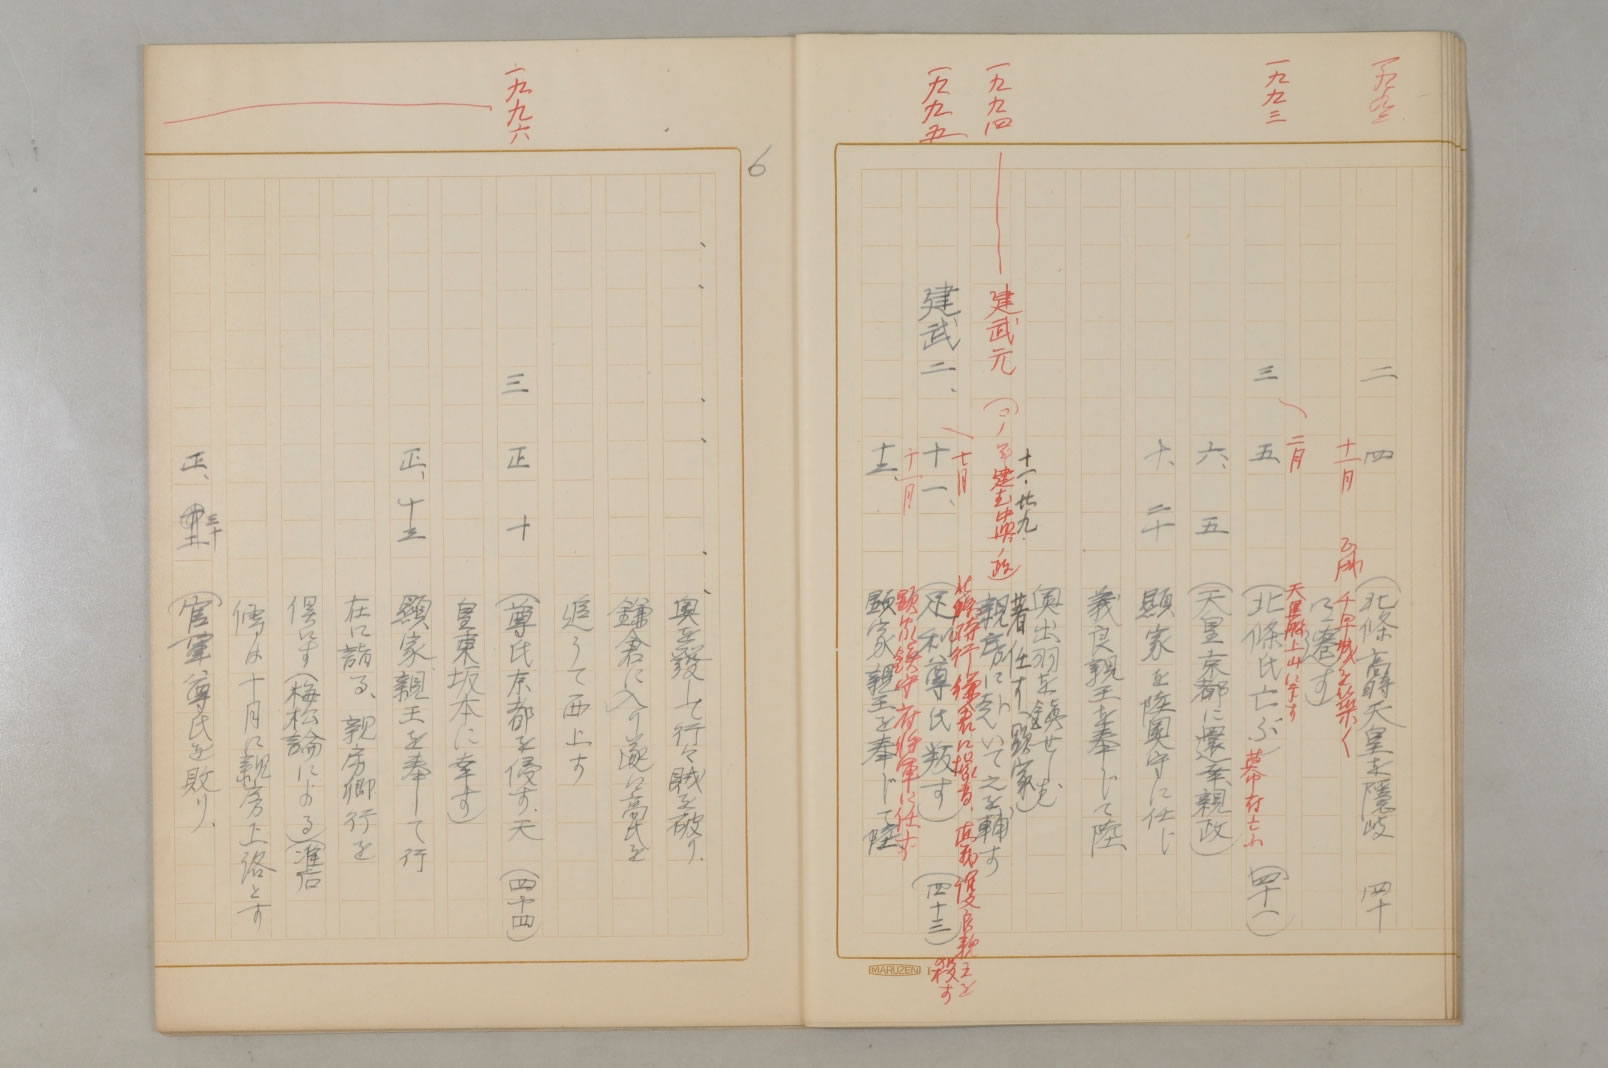 一九九二
二 四 (北條高時天皇を隠岐 四十
に遷す)
十一月 正成千早城を築く
二月 天皇船上山に幸す
一九九三
三 五 (北條氏亡ぶ) 幕府亡ぶ (四十一)
六、五 (天皇京都に還幸親政)
十、二十 顯家を陸奥守に任じ
義良親王を奉じて陸
奥出羽を鎮せしむ
十一、廿九 著任す(顯家)
一九九四
建武元 (コノ年建武中興ノ政)
親房に就いて之を輔す
七月 北條時行鎌倉に據る、直義護良親王を
殺す
一九九五
建武二、十一、 (足利尊氏叛す) (四十三)
十一月 顯家鎮守府将軍に任ず
十二、 顯家親王を奉じて陸
MARUZEN
6
奥を發して行々賊を破り、
鎌倉に入り遂に高氏を
追うて西上す
一九九六
三 正 十 (尊氏京都を侵す、天 (四十四)
皇東坂本に幸す)
正、十三 顯家親王を奉して行
在に詣る、親房卿行を
倶にす(梅松論による)准后
傳は十月に親房上洛とす
正、三十 (官軍尊氏を敗り、